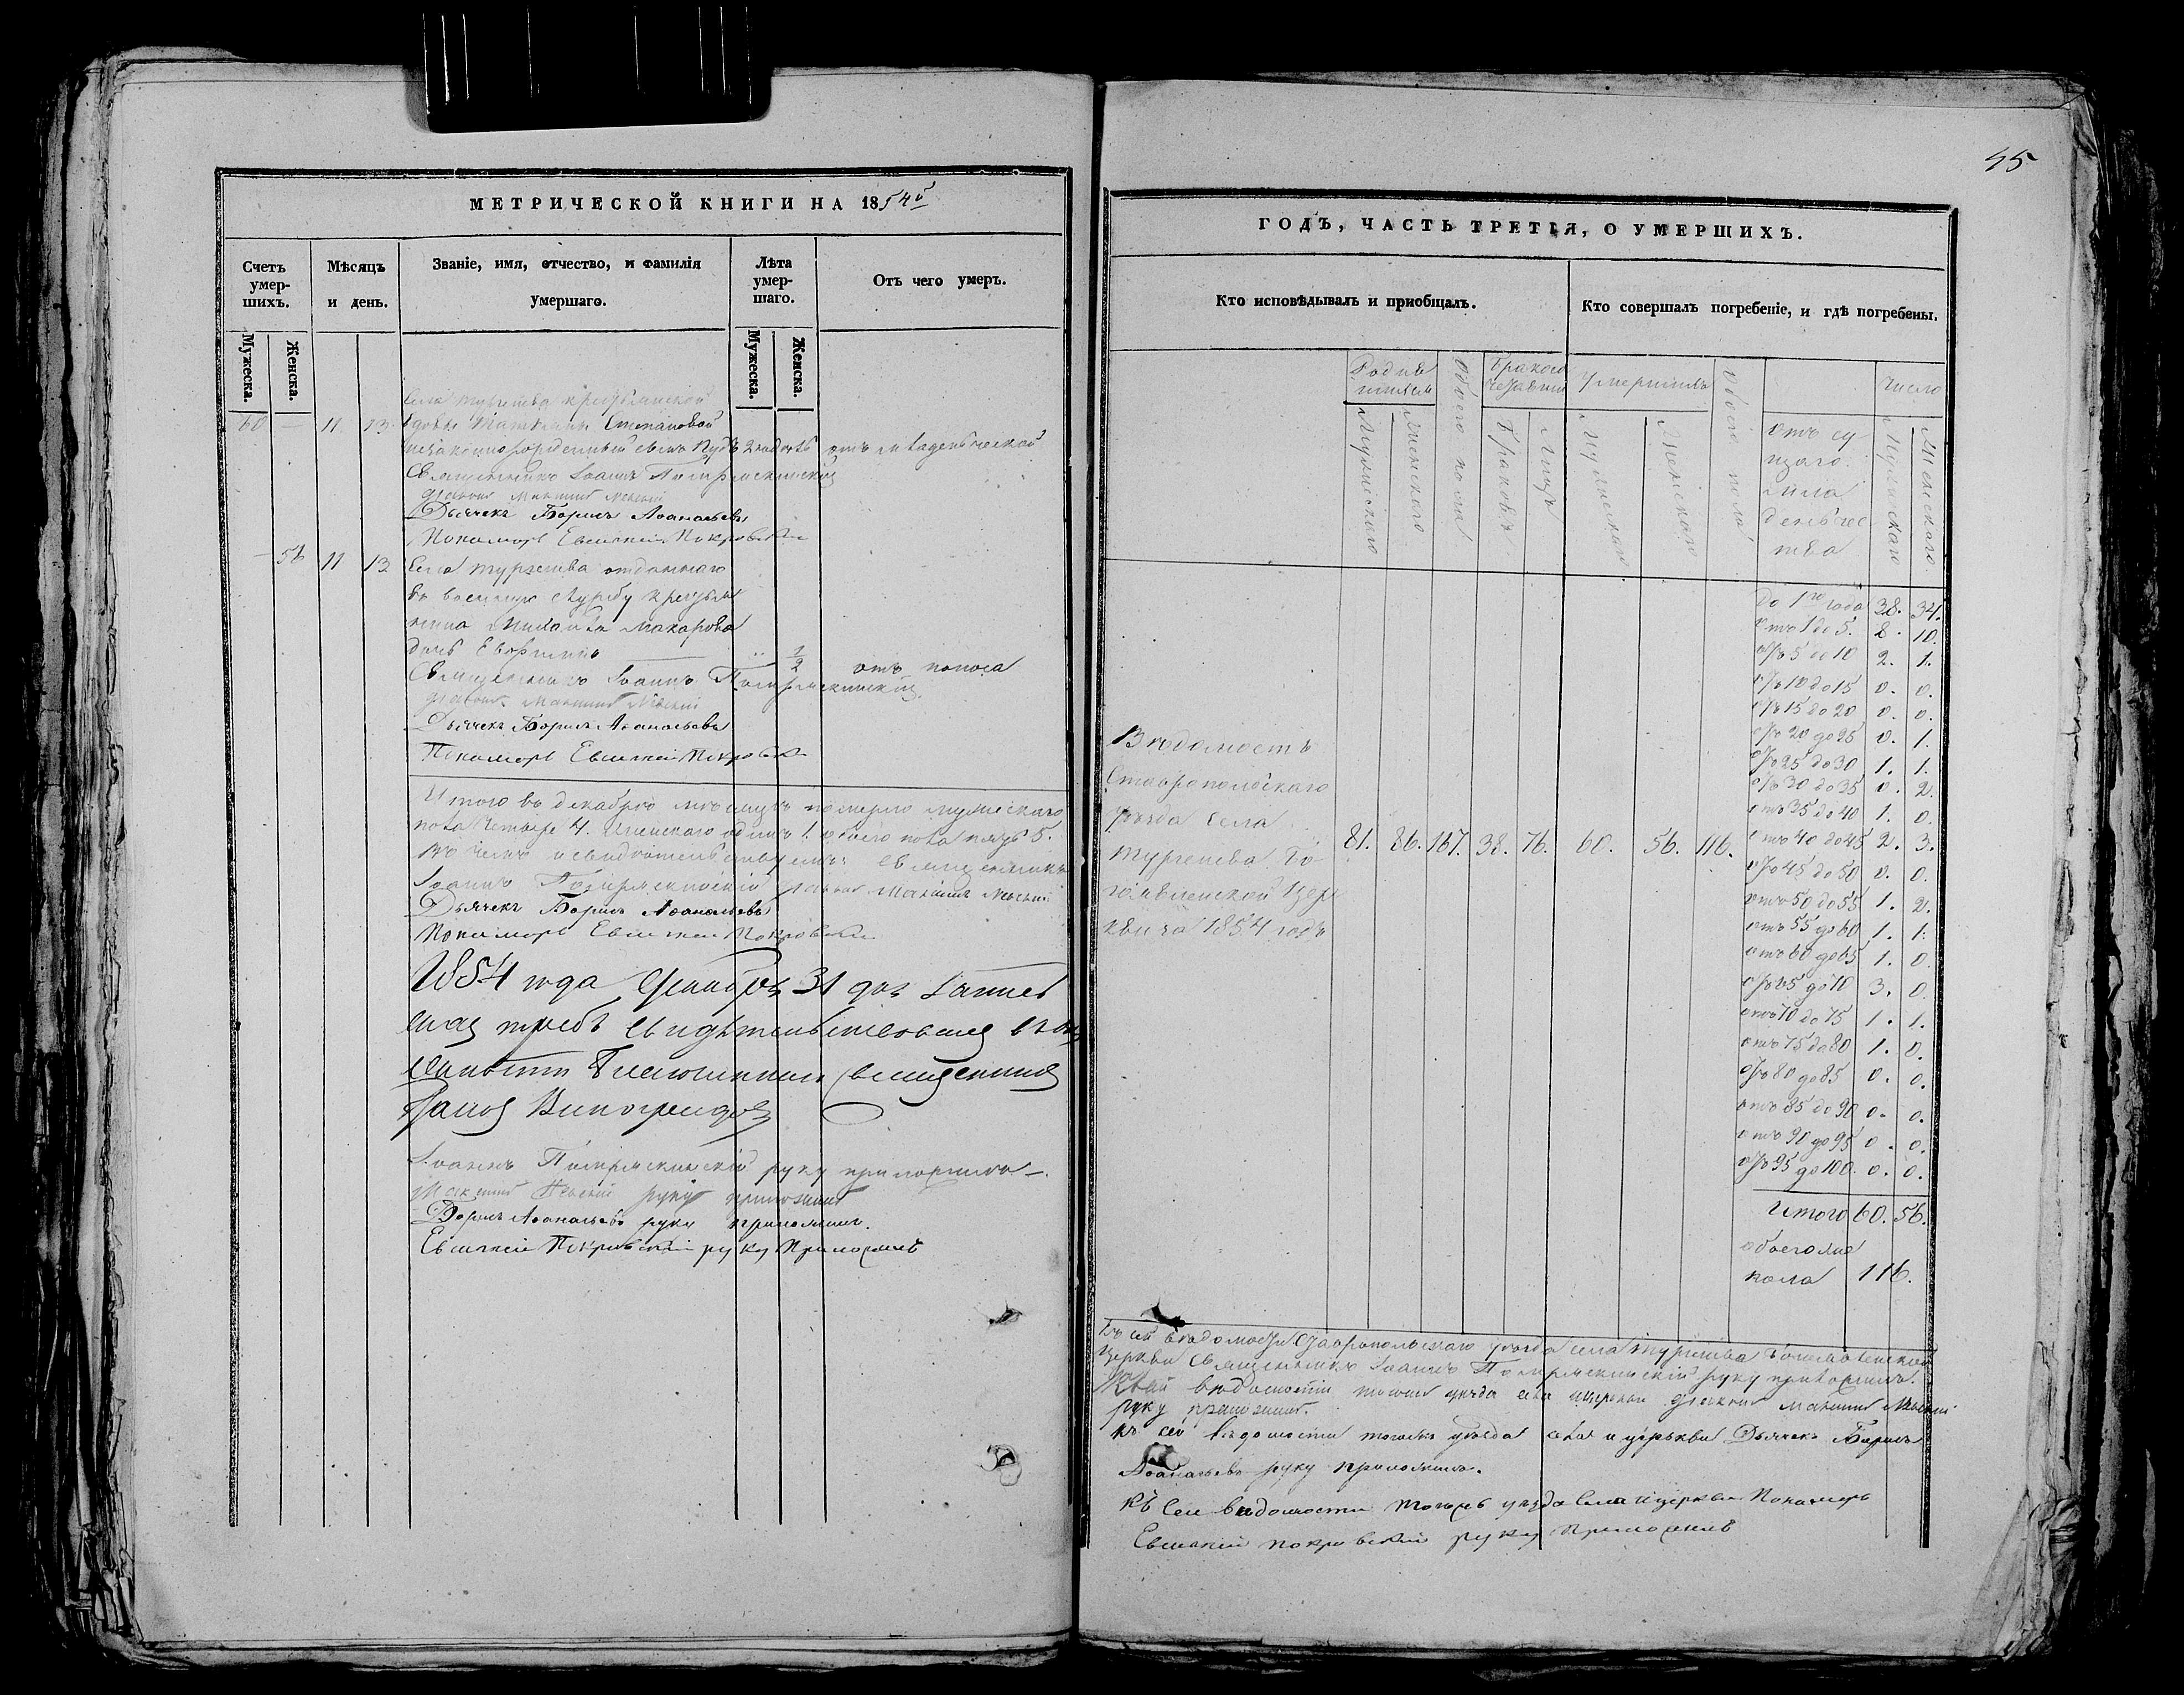 МЕТРИЧЕСКОЙ КНИГИ НА 1854й
Счетъ умер-шихъ.
Мѣсяцъ и день.
Званіе, имя, отчество, и фамилія умершаго.
Лѣта умер-шаго.
Отъ чего умеръ.
Мужеска.
Женска.
Мужеска.
Женска.
села тургенева крестьянской
60 — 11 13 вдовы Степановой
незаконнорожденный сынъ отъ младенческой
Священникъ Іоаннъ
діаконъ
Дьячекъ Борисъ Афанасьевъ
Пономарь Покровскій
— 56 11 13 Села тургенева отданнаго
въ военную службу крестья
нина Макарова
дочь 1/2 отъ поноса
Священникъ Іоаннъ
діаконъ
Дьячекъ Борисъ Афанасьевъ
Пономарь Покровскій
Итого въ декабрѣ мѣсяцѣ померло мужескаго
пола четыре 4. женскаго одинъ 1. обоего пола пять 5.
въ чемъ и свидѣтельствуемъ: священникъ
Іоаннъ діаконъ
Дьячекъ Борисъ Афанасьевъ
Пономарь Покровскій
1854 года Декабря 31 дня
свидѣтельствовалъ
Благочинный священникъ
Виноградовъ
Іоаннъ руку приложилъ.
руку приложилъ
Борисъ Афанасьевъ руку приложилъ.
Покровскій руку приложилъ
45
ГОДЪ, ЧАСТЬ ТРЕТІЯ, О УМЕРШИХЪ.
Кто исповѣдывалъ и пріобщалъ.
Кто совершалъ погребеніе, и гдѣ погребены.
Родив
шихся
Мужескаго
Женскаго
Обоего пола
Бракосо
четавших
Браковъ
Лицъ
Умершихъ
Мужескаго
Женскаго
Обоего пола
Число
Мужескаго
Женскаго
до 1го года 38. 34.
отъ 1 до 5. 8. 10.
отъ 5 до 10 2. 1.
отъ 10 до 15 0. 0.
отъ 15 до 20 0. 0.
отъ 20 до 25 0. 1.
отъ 25 до 30 1. 1.
отъ 30 до 35 0. 2.
отъ 35 до 40 1. 0.
отъ 40 до 45 2. 3.
отъ 45 до 50 0. 0.
отъ 50 до 55 1. 2.
отъ 55 до 60 1. 1.
отъ 60 до 65 1. 0.
отъ 65 до 70 3. 0.
отъ 70 до 75 1. 1.
отъ 75 до 80 1. 0.
отъ 80 до 85 0. 0.
отъ 85 до 90 0. 0.
отъ 90 до 95 0. 0.
отъ 95 до 100. 0. 0.
Итого 60. 56.
обоего
пола 116.
Вѣдомость
Ставропольскаго
уѣзда села
тургенева Бо-
гоявленской Цер
кви за 1854 годъ
81. 86. 167. 38. 76. 60. 56. 116.
Къ сей вѣдомости Ставропольскаго уѣзда села Тургенева Богоявленской
Церкви Священникъ Іоаннъ руку приложилъ.
Къ сей вѣдомости уѣзда села и церкви діаконъ
руку приложилъ.
къ сей вѣдомости тогожъ уѣзда села и церькви Дьячекъ Борисъ
Афанасьевъ руку приложилъ.
Къ сей вѣдомости тогожъ уѣзда Села и церкви Пономарь
Покровскій руку приложилъ